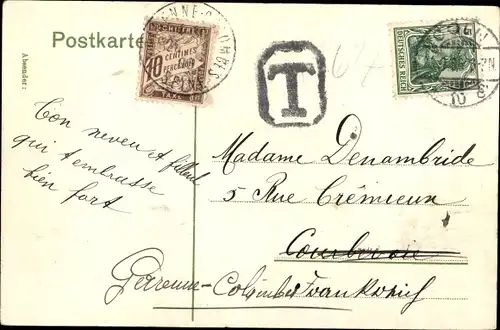 Postkarte
Absender:
10
CENTIMES
À PERCEVOIR
TAXE
T
DEUTSCHES REICH
Ton neveu et filleul
qui t'embrasse
bien fort
Madame Denambride
5 Rue Crémieux
Courbevoie
Garenne-Colombes Frankreich